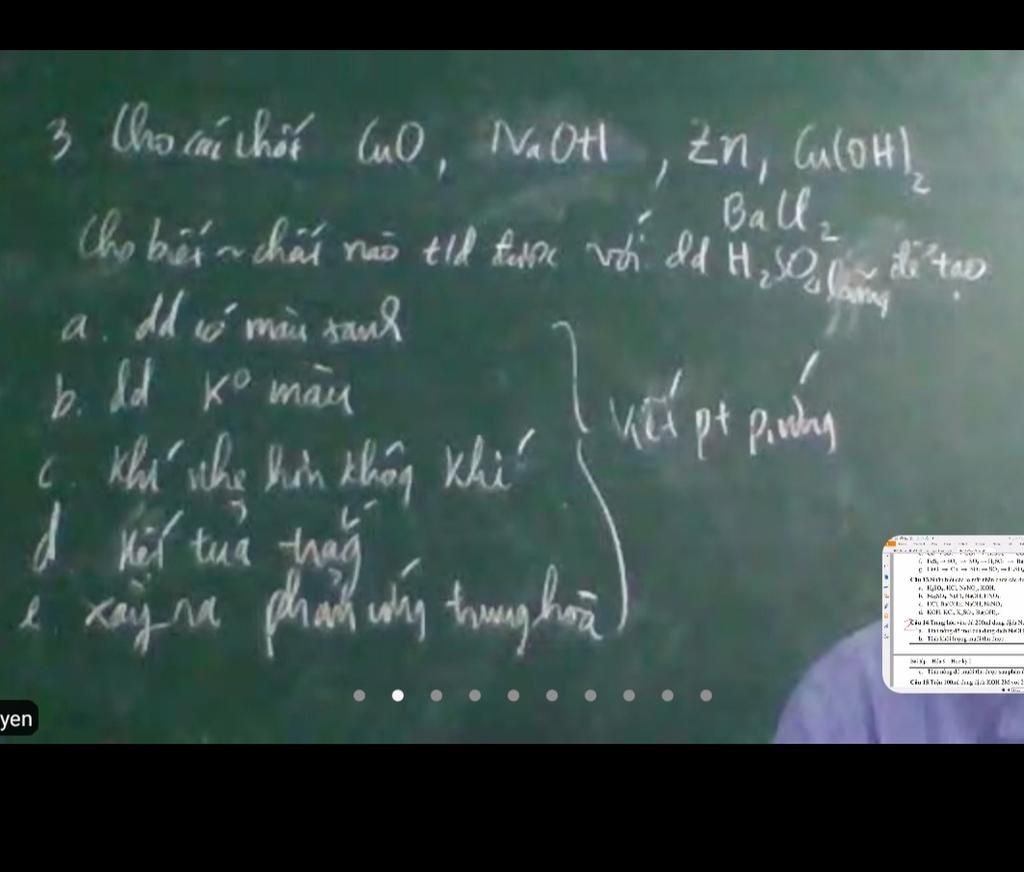 3 Cho các chất CuO, NaOH, Zn, Cu(OH)₂
BaCl₂
Cho biết ~ chất nào t/d được với dd H₂SO₄ loãng để tạo
a. dd có màu xanh
b. dd K° màu
c. khí nhẹ hơn không khí
d kết tủa trắng
e xảy ra phản ứng trung hoà
Viết pt p.ứng
yen